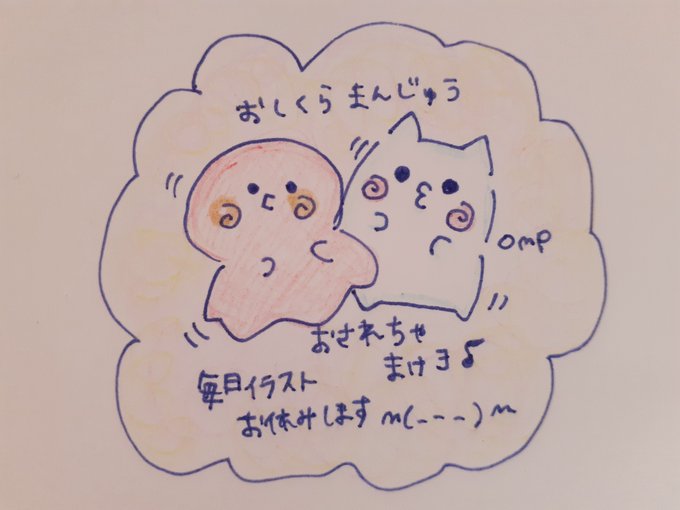 おしくら まんじゅう
omp
おされちゃ
まけヨ♪
毎日イラスト
お休みします m(---)m